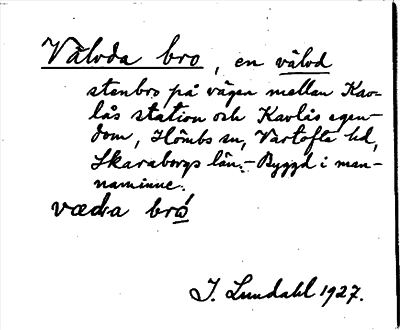 Välvda bro, en välvd
stenbro på vägen mellan Kav-
lås station och Kavlås egen-
dom, Hömbs sn, Vartofta hd,
Skaraborgs län. - Byggd i man-
naminne.
bro
I. Lundahl 1927.